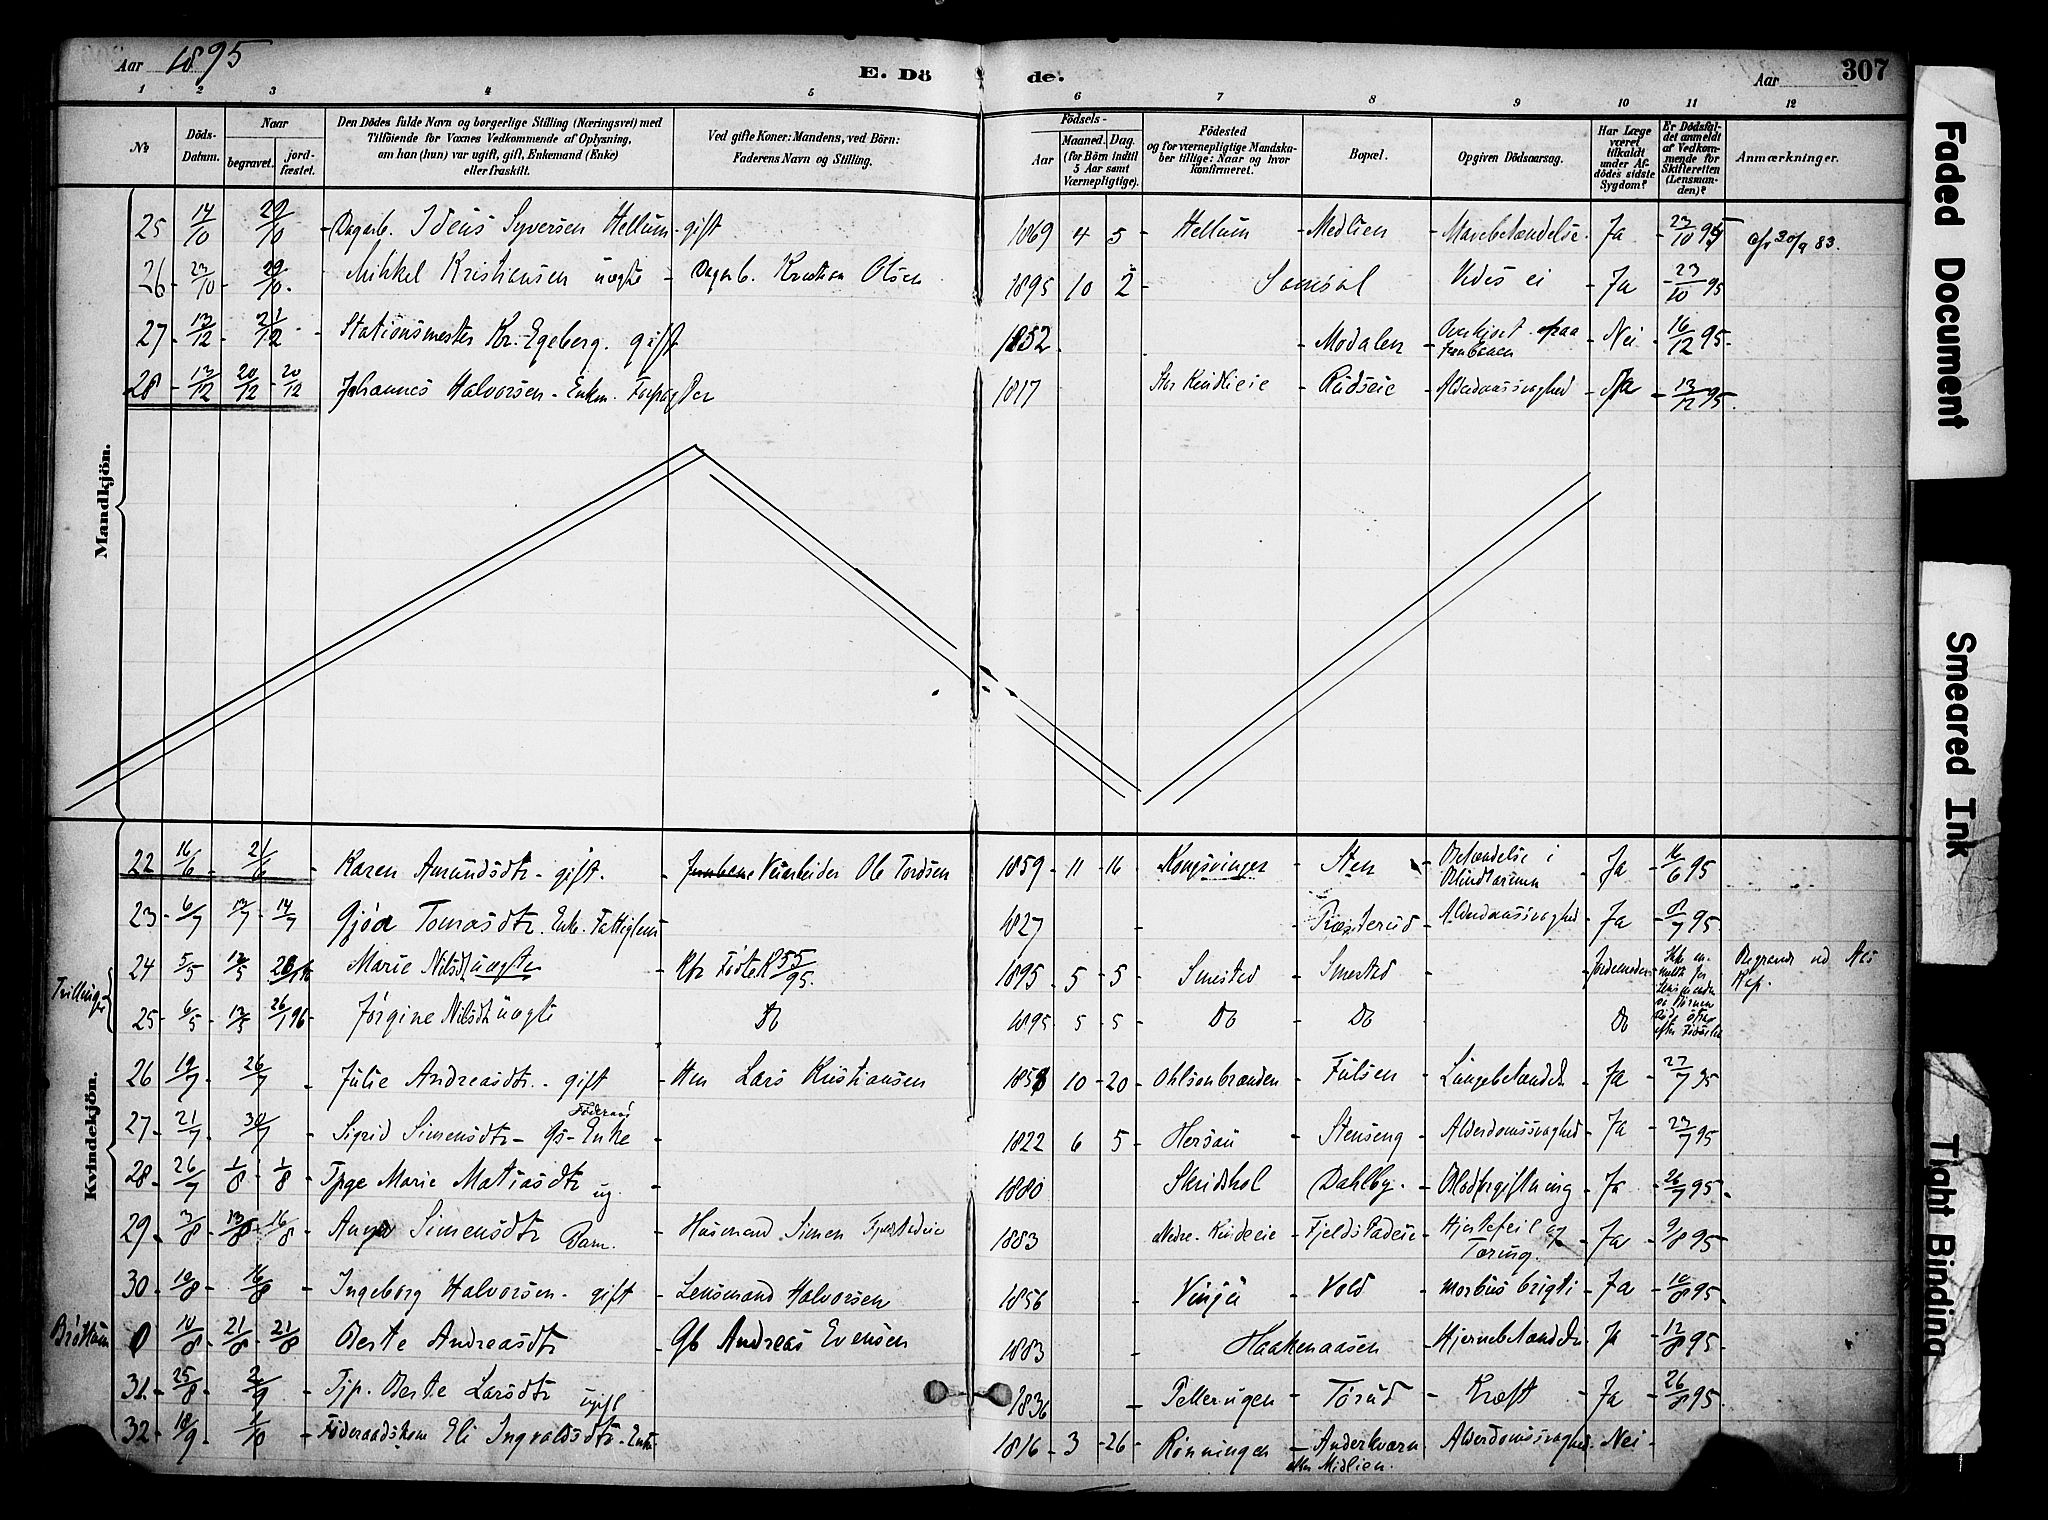 Aar 1895
E. Döde.
Aar
307
1 2 3 4 5 6 7 8 9 10 11 12
No
Döds-Datum.
Naar
begravet.
jord-fæstet.
Den Dödes fulde Navn og borgerlige Stilling (Næringsvei) med
Tilföiende for Voxnes Vedkommende af Oplysning,
om han (hun) var ugift, gift, Enkemand (Enke)
eller fraskilt.
Ved gifte Koner: Mandens, ved Börn:
Faderens Navn og Stilling.
Födsels-
Aar
Maaned. Dag.
(for Börn indtil
5 Aar samt
Værnepligtige).
Födested
og for værnepligtige Mandska-
ber tillige: Naar og hvor
konfirmeret.
Bopæl.
Opgiven Dödsaarsag.
Har Læge
været
tilkaldt
under Af-
dödes sidste
Sygdom?
Er Dödsfal-
det anmeldt
af Vedkom-
mende for
Skifteretten
(Lensman-
den)?
Anmærkninger.
Mandkjön.
25 14/10 29/10 Dagarb. Ideus Syversen Hellum gift 1869 4 5 Hellum Medlien Mavebetændelse Ja 23/10 95 30/9 83.
26 23/10 29/10 Mikkel Kristiansen uægte Dagarb. Kristian Olsen 1895 10 2 Vides ei Ja 23/10 95
27 13/12 21/12 Stationsmester Kr. Egeberg. gift 1852 Modalen Overkjørt paa Jernbanen Nei 16/12 95
28 13/12 20/12 20/12 Johannes Halvorsen Enkm. Forpagter 1817 Rudseie Alderdomssvaghed Ja 13/12 95
22 16/6 21/6 Karen Amundsdtr gift. Ole Tordsen 1859 11 16 Kongsvinger Sten Betændelse i Blindtarmen Ja 16/6 95
23 6/7 13/7 14/7 Gjøa Tomasdtr. Enke. Fattiglem 1827 Præsterud Alderdomssvaghed Ja 8/7 95
Trillinger
24 5/5 12/5 Marie Nilsdt uægte 1895 5 5 Smestad Smestad Jordemoder Begravd ved Nes Kap.
25 6/5 12/5 26/1 96 Jørgine Nilsdt uægte Do 1895 5 5 Do Do Do
Kvindekjön.
26 19/7 26/7 Julie Andreasdtr. gift Lars Kristiansen 1858 10 20 Ohlsenbrænden Fulsen Lungebetændel Ja 22/7 95
27 21/7 30/7 Sigrid Simensdtr Gs Enke 1822 6 5 Hersau Stenseng Alderdomssvaghed Ja 23/7 95
28 26/7 1/8 1/8 Tpge Marie Matiasdtr ug. 1880 Skridshol Dahlby Blodforgiftning Ja 26/7 95
29 3/8 13/8 16/8 Anna Simensdtr Barn. Husmand Simen Fjeldstadeie 1883 Fjeldstadeie Hjertefeil og Tæring Ja 9/8 95
30 10/8 16/8 Ingeborg Halvorsen gift Lensmand Halvorsen 1856 Vinju Vold Morbus brigti Ja 10/8 95
Brøttum
0 10/8 21/8 21/8 Berte Andreasdtr Gb Andreas Evensen 1883 Haakenaasen Hjernebetændel Ja 12/8 95
31 25/8 2/9 Tjp. Berte Larsdtr ugift 1836 Pellerugen Torud Kræft Ja 26/8 95
32 18/9 1/10 Føderaadskone Eli Ingvaldsdtr Enke 1816 3 26 Rønningen Anderkværn eller Midlien. Alderdomssvaghed Nei
Faded Document
Smeared Ink
Tight Binding